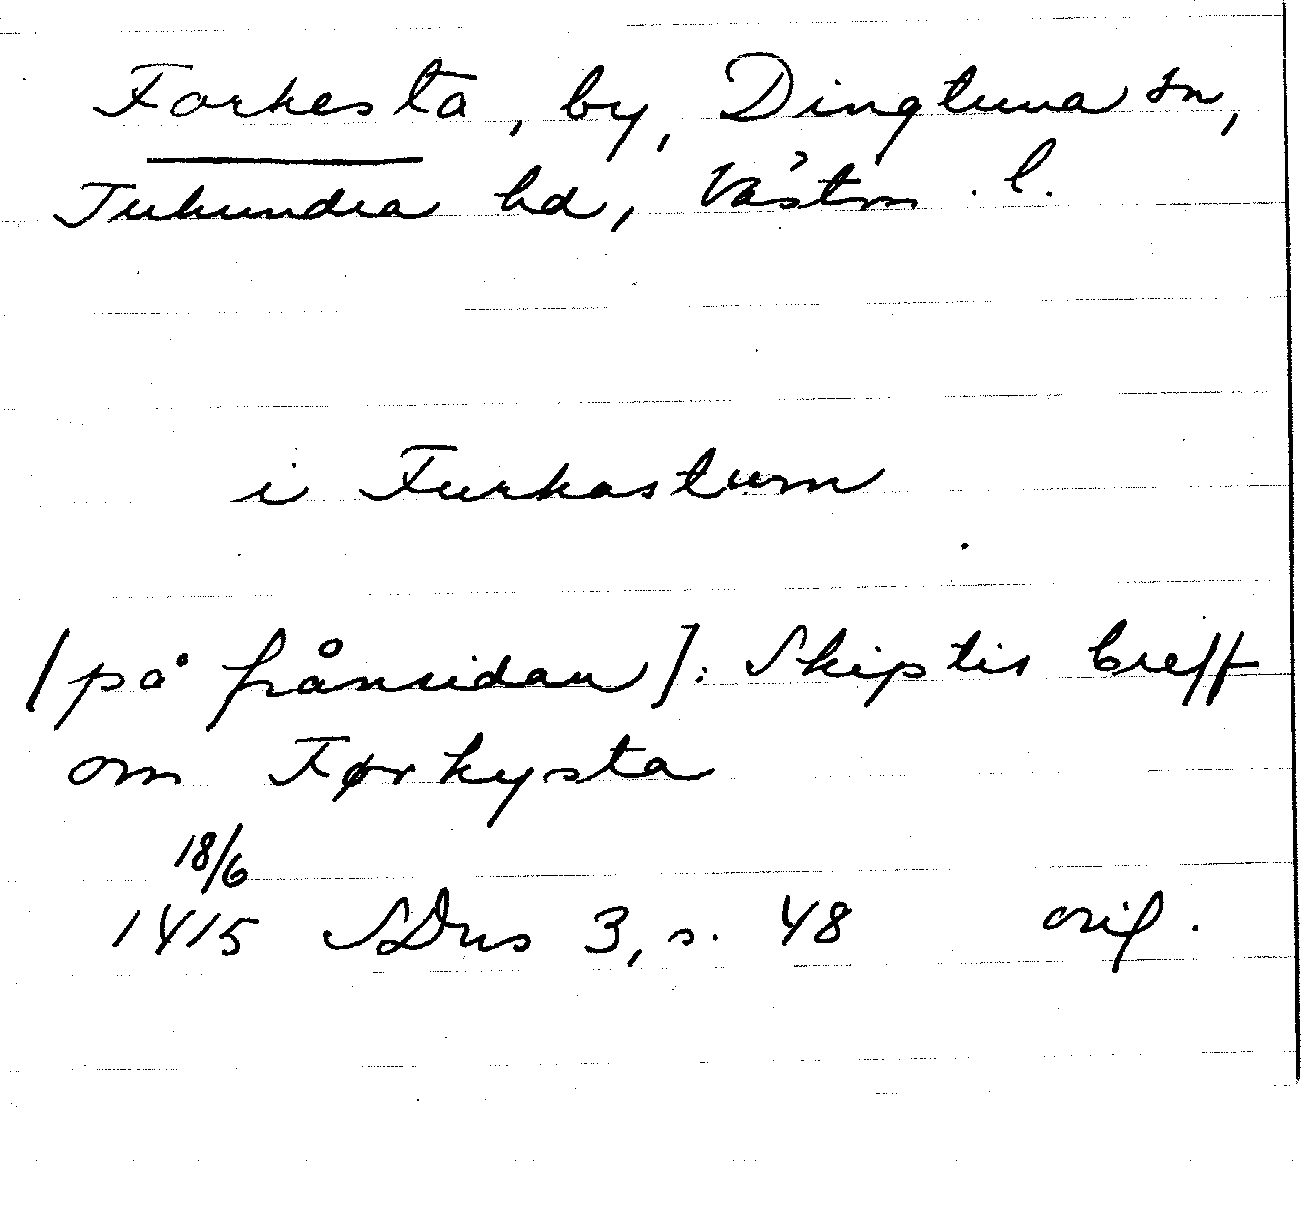 Forkesta, by, Dingtuna sn,
Tuhundra hd, Västm. l.
i Furkastum
[på frånsidan]: Skiptis breff
om Førkysta
18/6
1415 SDns 3, s. 48 orig.